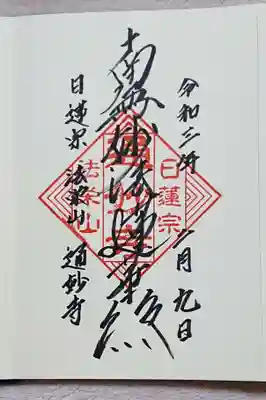 令和三年 月九日
南無妙法蓮華経
日蓮宗 法栄山 妙寺
日蓮宗
法栄山